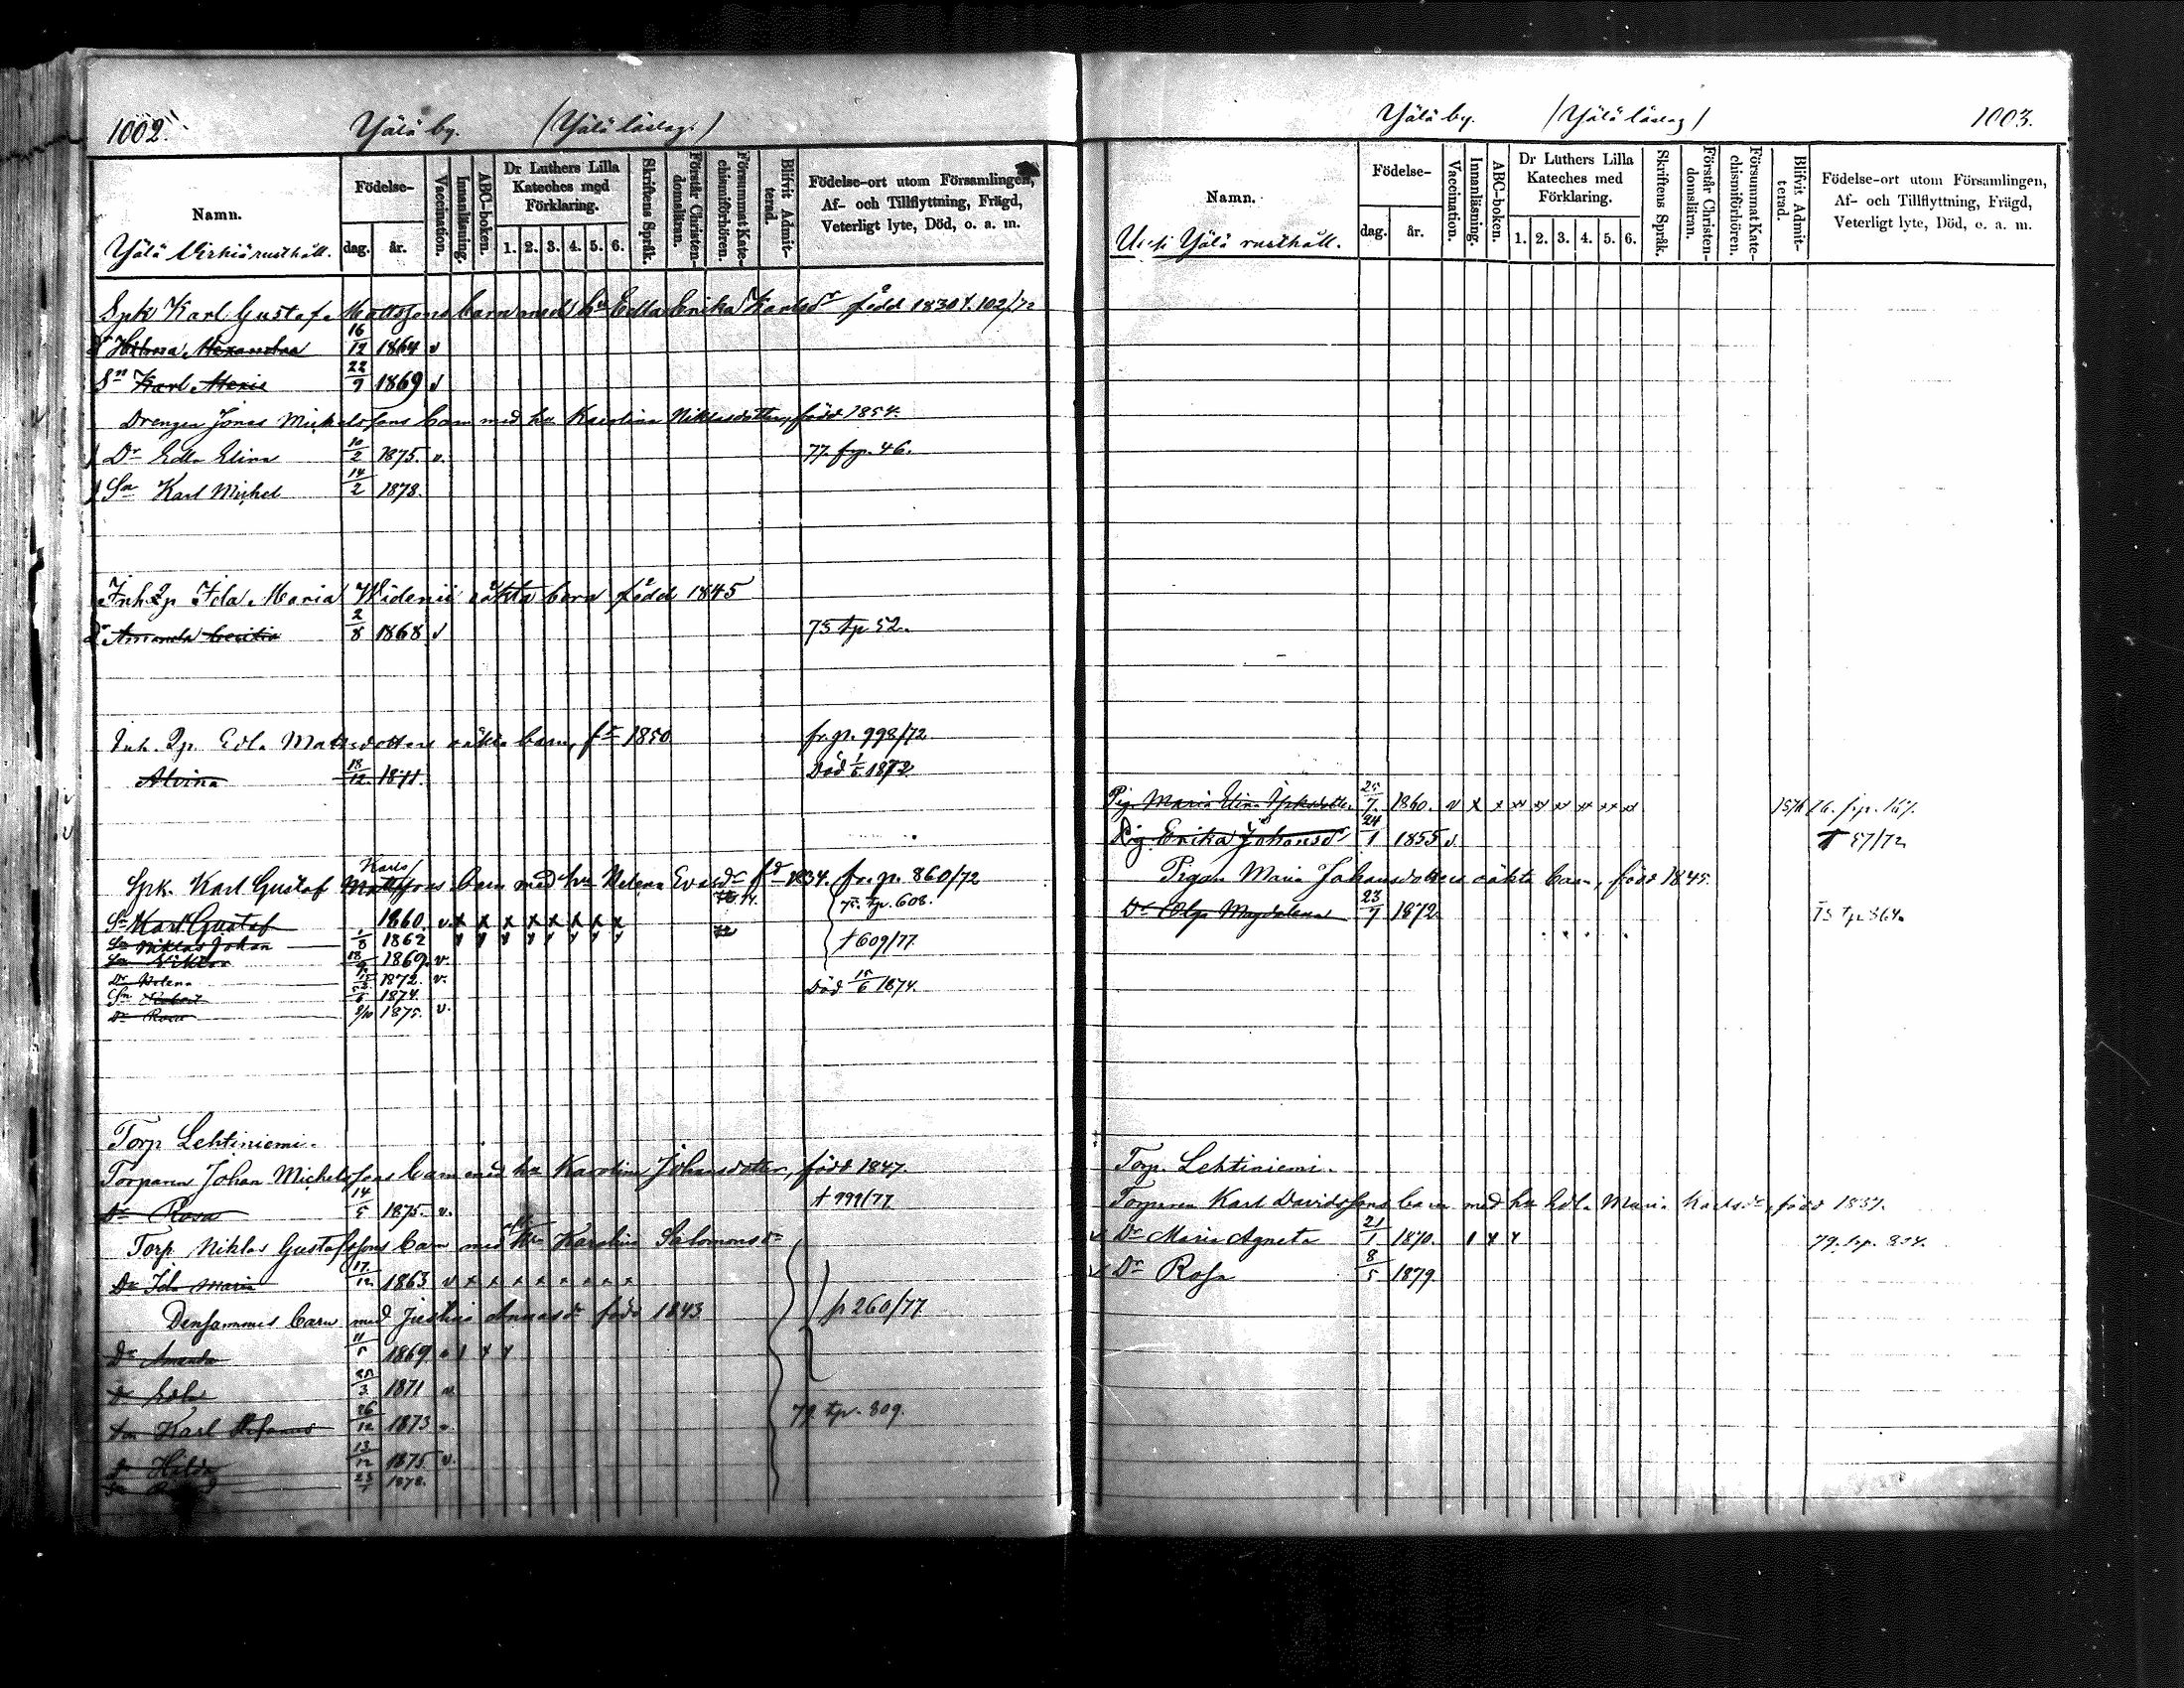 1002.
Yälä by. (Yälä läslag.)
Namn.
Yälä Virkiä rusthåll.
Födelse-
dag.
år.
Vaccination.
Innanläsning.
ABC-boken.
Dr Luthers Lilla Kateches med Förklaring.
1. 2. 3. 4. 5. 6.
Skriftens Språk.
Förstår Christendomsläran.
Försummat Katechismiförhören.
Blifvit Admitterad.
Födelse-ort utom Församlingen, Af- och Tillflyttning, Frägd, Veterligt lyte, Död, o. a. m.
Spk Karl Gustaf Mattssons barn med hu Edla Erika Karlsdr född 1830 t. 102/72
Dr Hilma Alexandra 16/12 1864 v
Sn Karl Alexis 22/9 1869 v
Drengen Jonas Michelssons barn med hu Karolina Niklasdotter, född 1854.
Dr Edla Elina 10/2 1875. v. 77. frp. 46.
Sn Karl Michel 14/2 1878.
Inh. Qp Ida Maria Widenii oäkta barn född 1845
Dr Amanda Cecilia 2/8 1868 v 75 tp 52.
Inh. Qp. Edla Matsdotters oäkta barn, fdd 1850 fr. p. 998/72
Alvina 18/12 1871. Död 1/5 1872
Spk. Karl Gustaf Karls/ Mattssons barn med hu Helena Evasdr fd 1834. fr. p. 860/72
Sn Karl Gustaf 1860. v. x x x x x x x x 75. tp. 608.
Sn Niklas Johan 1/8 1862 † 609/77.
Sn Viktor 18/9 1869. v.
Dr Helena 1872. v.
Sn 1874. Död 15/6 1874.
Dr Rosa 9/10 1875. v.
Torp Lehtiniemi.
Torparen Johan Michelssons barn med hu Karolina Johansdotter, född 1847.
Dr Rosa 14/5 1875. v. † 999/77
Torp. Niklas Gustafssons barn med Karolina Salomonsdr
Dr Ida Maria 17/12 1863 v x x x x x x x x
Densammes barn med Justina Annasdr född 1843 p 260/77
Dr Amanda 11/5 1869
Dr Edla 3 1871 v.
Sn Karl Stefanus 26/12 1873 v. 79. tp. 809.
Dr Hilda 13/12 1875. v.
23/1 1878.
Yälä by. (Yälä läslag)
1003.
Namn.
Uusi Yälä rusthåll.
Födelse-
dag.
år.
Vaccination.
Innanläsning.
ABC-boken.
Dr Luthers Lilla Kateches med Förklaring.
1. 2. 3. 4. 5. 6.
Skriftens Språk.
Förstår Christendomslänn.
Försummat Katechismiförhören.
Blifvit Admitterad.
Födelse-ort utom Församlingen, Af- och Tillflyttning, Frägd, Veterligt lyte, Död, o. a. m.
Pig. Maria Elina 25/7. 1860. v x x xx xx xx xx xx xx 76. frp. 167.
Pig. Erika Johansdr 24/1 1855 v. † 57/72
Pigan Maria Johansdotters oäkta barn, född 1845.
Dr Olga Magdalena 23/7 1872 73 tp 864.
Torp. Lehtiniemi.
Torparen Karl Davidssons barn med hu Edla Maria Karlsdr, född 1837.
v Dr Maria Agneta 21/1 1870. 79. tp. 804.
v Dr Rosa 8/5 1879